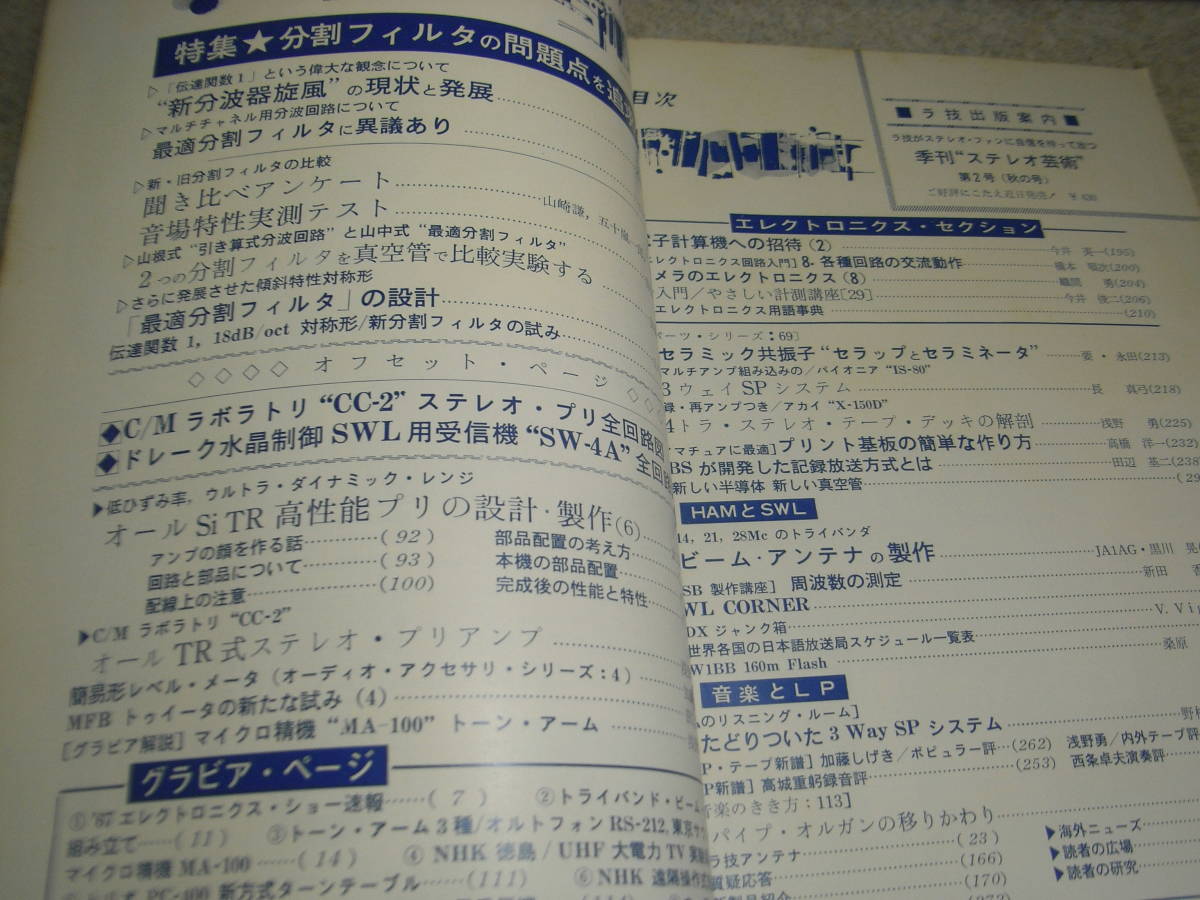 特集★分割フィルタの問題点を追
▷「伝達関数1」という偉大な観念について
“新分波器旋風”の現状と発展
▷マルチチャネル用分波回路について
最適分割フィルタに異議あり
▷新・旧分割フィルタの比較
聞き比べアンケート………山崎謙，五十嵐
音場特性実測テスト
▷山根式“引き算式分波回路”と山中式“最適分割フィルタ”
2つの分割フィルタを真空管で比較実験する
▷さらに発展させた傾斜特性対称形
「最適分割フィルタ」の設計
伝達関数1，18dB/oct 対称形/新分割フィルタの試み
◇◇◇◇ オフセット・ページ ◇◇
◆C/M ラボラトリ“CC-2”ステレオ・プリ全回路図
◆ドレーク水晶制御 SWL 用受信機“SW-4A”全回
▶低ひずみ率，ウルトラ・ダイナミック・レンジ
オール Si TR 高性能プリの設計・製作(6)
アンプの顔を作る話…………( 92 )
回路と部品について…………( 93 )
配線上の注意…………(100)
部品配置の考え方
本機の部品配置
完成後の性能と特性
▶C/M ラボラトリ “CC-2”
オール TR 式ステレオ・プリアンプ
簡易形レベル・メータ (オーディオ・アクセサリ・シリーズ：4)
MFB トゥイータの新たな試み (4)
[グラビア解説] マイクロ精機 “MA-100” トーン・アーム
グラビア・ページ
①'67エレクトロニクス・ショー速報……( 7 )
②トライバンド・ビーム
組み立て……( 11 )
③トーン・アーム3種/オルトフォン RS-212，東京サウ
マイクロ精機 MA-100……( 14 )
④ NHK 徳島/UHF 大電力 TV 実
PC-400 新方式ターンテーブル……(111)
⑥NHK 遠隔操作
目次
■ラ技出版案内■
ラ技がステレオ・ファンに自信を持って放つ
季刊“ステレオ芸術”
第2号 (秋の号)
ご好評にこたえ近日発売！ ￥430
エレクトロニクス・セクション
子計算機への招待 (2)………今井 英一(195)
エレクトロニクス回路入門] 8・各種回路の交流動作………橋本 順次(200)
メラのエレクトロニクス (8)………織間 勇(204)
入門/やさしい計測講座[29]………今井 俊二(206)
エレクトロニクス用語事典………(210)
パーツ・シリーズ：69]
セラミック共振子“セラップとセラミネータ”………要・永田(213)
マルチアンプ組み込みの/パイオニア “IS-80”
3ウェイSPシステム………長 真弓(218)
録・再アンプつき/アカイ “X-150D”
4トラ・ステレオ・テープ・デッキの解剖………浅野 勇(225)
マチュアに最適] プリント基板の簡単な作り方………高橋 洋一(232)
BSが開発した記録放送方式とは………田辺 基二(238
新しい半導体 新しい真空管………(29
HAMとSWL
14，21，28Mc のトライバンダ
ビーム・アンテナの製作………JA1AG・黒川 晃
SB 製作講座] 周波数の測定………新田
WL CORNER………V. Vi
DX ジャンク箱
世界各国の日本語放送局スケジュール一覧表………桑原
W1BB 160m Flash
音楽とLP
のリスニング・ルーム]
たどりついた 3 Way SP システム………野
P・テープ新譜] 加藤しげき/ポピュラー評…(262) 浅野勇/内外テープ評
P新譜] 高城重躬録音評………(253) 西条卓夫演奏評
音楽のきき方：113]
パイプ・オルガンの移りかわり
ラ技アンテナ………( 23 )
質疑応答………(166)
新製品紹介………(170)
▶海外ニュース
▶読者の広場
▶読者の研究